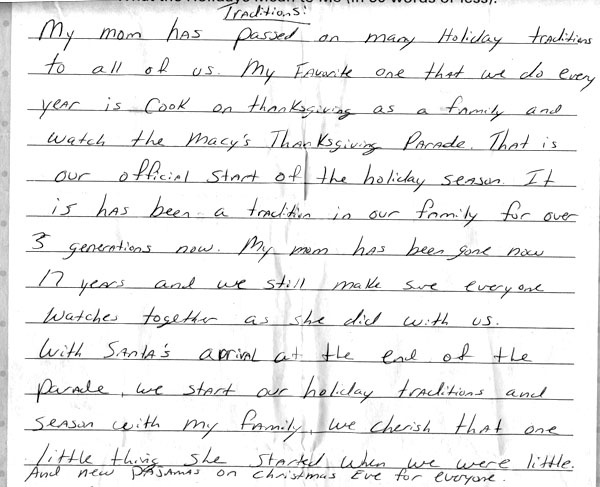 What the Holidays Mean to Me (in 50 words or less):
Traditions:
My mom has passed on many Holiday traditions
to all of us. My Favorite one that we do every
year is Cook on thanksgiving as a family and
watch the Macy's Thanksgiving Parade. That is
our official start of the holiday season. It
is has been a tradition in our family for over
3 generations now. My mom has been gone now
17 years and we still make sure everyone
watches together as she did with us.
With Santa's arrival at the end of the
parade, we start our holiday traditions and
season with my family, we cherish that one
little thing she started when we were little.
And new pajamas on christmas Eve for everyone.